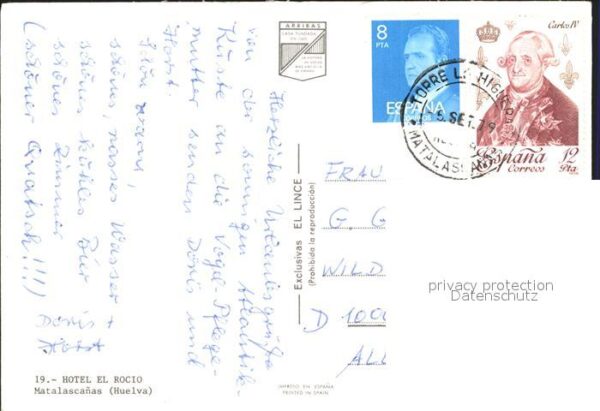 Herzliche Urlaubsgrüße
von der sonnigen Atlantik-
Küste an die Vogel-Pflege-
mutter senden Doris und
Horst
schönes, nasses Wasser +
schönes kühles Bier
schönes Zimmer
(schöner Quatsch!!!)
Doris +
Horst
19.- HOTEL EL ROCIO
Matalascañas (Huelva)
ARRIBAS
Exclusivas EL LINCE
(Prohibida la reproducción)
IMPRESO EN ESPAÑA
PRINTED IN SPAIN
8
PTA
ESPAÑA
CORREOS
Carlos IV
España
Correos
12
Pta
TORRE LA HIGUERA
5 SET. 79
MATALASCAÑAS
FRAU
G. G
WILD
D 100
ALL
privacy protection
Datenschutz